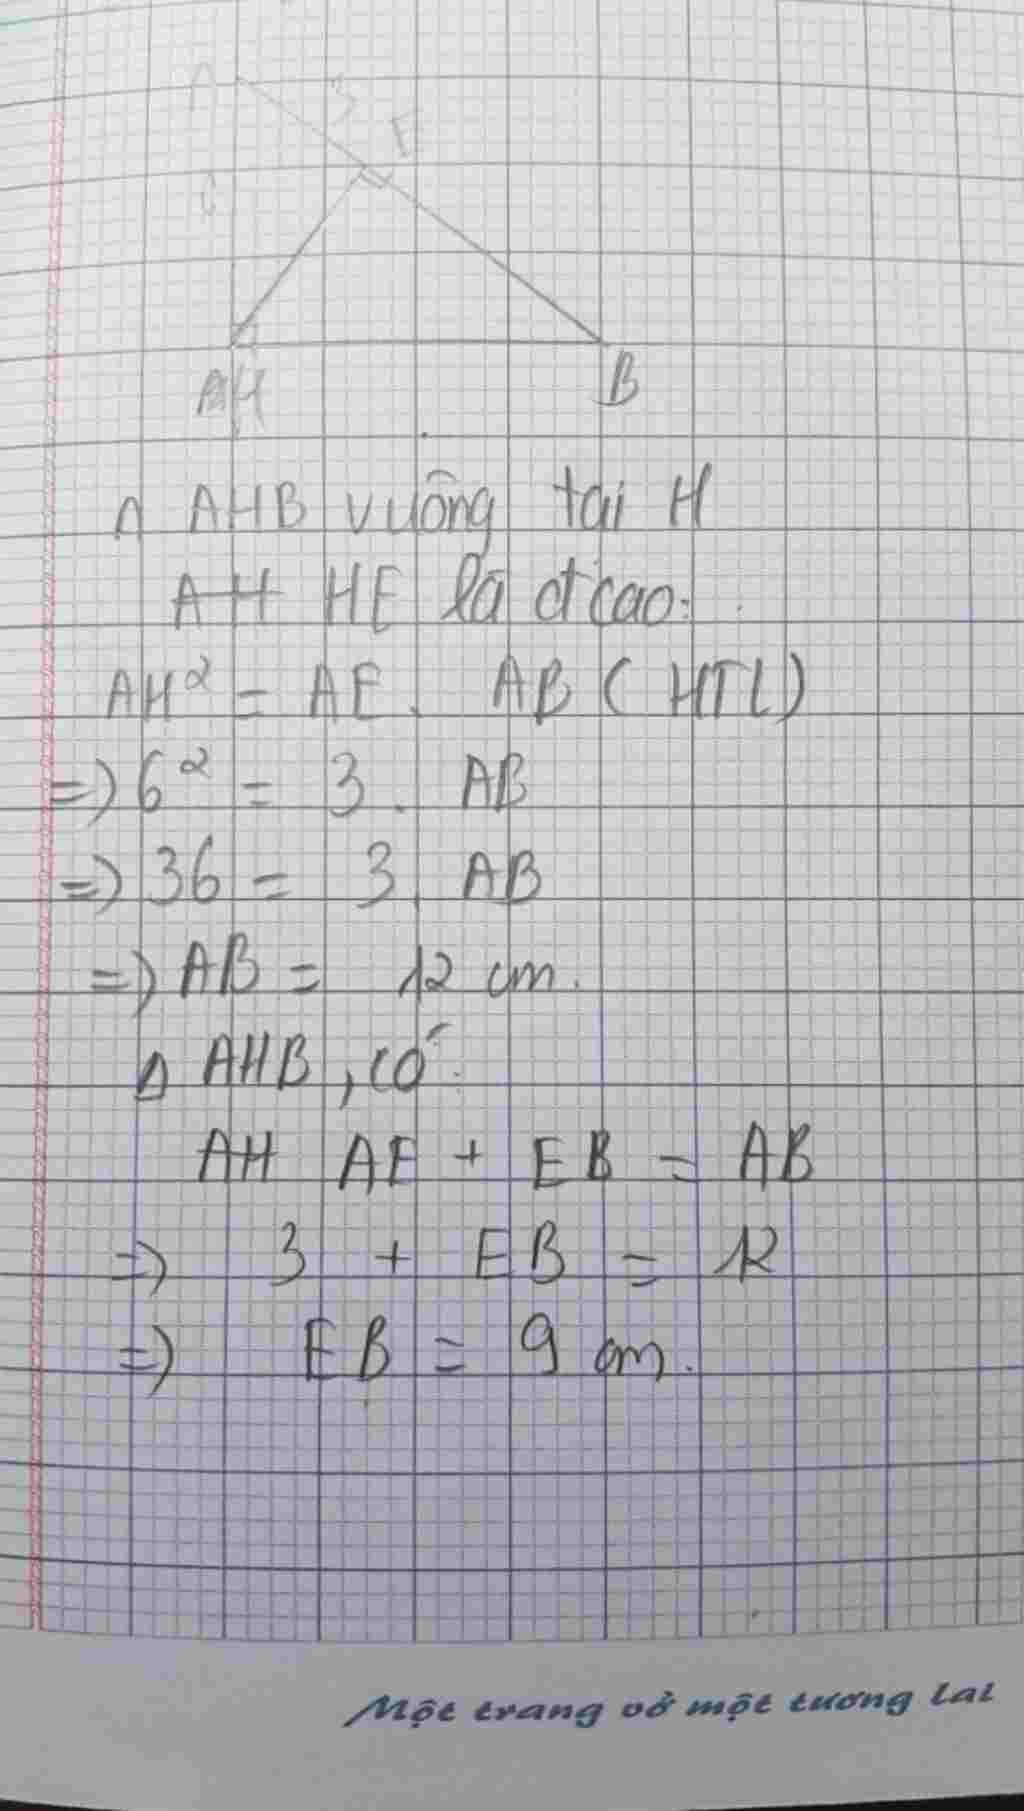 A
3
E
6
H
B
Δ AHB vuông tại H
HE là đcao:
AH² = AE. AB (HTL)
=> 6² = 3. AB
=> 36 = 3. AB
=> AB = 12 cm.
Δ AHB, có:
AH AE + EB = AB
=> 3 + EB = 12
=> EB = 9 cm.
Một trang vở một tương lai